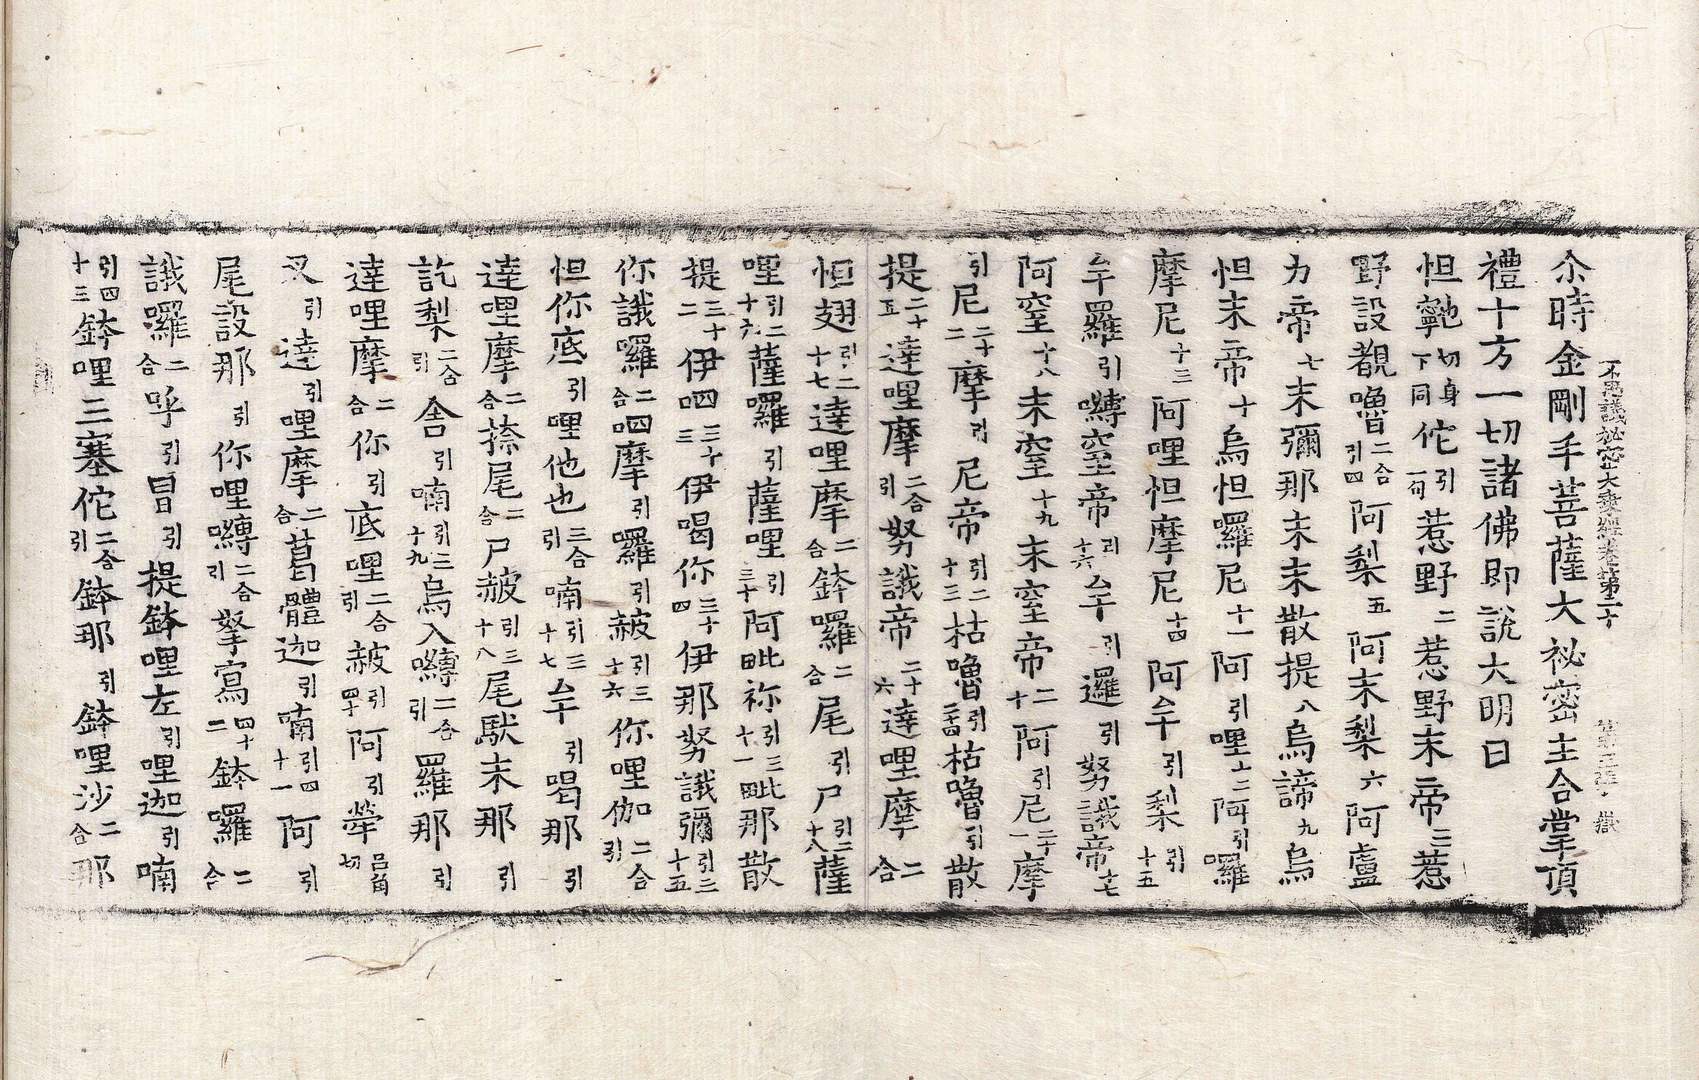 不思議祕密大乘經卷第二十 第三張 嶽
尒時金剛手菩薩大祕密主合掌頂
禮十方一切諸佛即說大明曰
怛𩕳切身下同佗引一句惹野二惹野末帝三惹
野設覩嚕二合引四阿梨五阿末梨六阿盧
力帝七末彌那末末散提八烏諦九烏
怛末帝十烏怛囉尼十一阿引哩十二阿引囉
摩尼十三阿哩怛摩尼十四阿牟引梨引十五
牟羅引嚩窒帝引十六牟引邏引努誐帝十七
阿窒十八末窒十九末窒帝二十阿引尼二十一摩
引尼二十二摩引尼帝引二十三枯嚕引二十四枯嚕引散
提二十五達哩摩二合引努誐帝二十六達哩摩二合
怛翅引二十七達哩摩二合鉢囉二合尾引尸引二十八薩
哩引二十六薩囉引薩哩引三十阿毗祢引三十一毗那散
提三十二伊呬三十三伊喝你三十四伊那努誐彌引三十五
你誐囉二合呬摩引囉引赧引三十六你哩伽二合引
怛你底引哩他也三合引喃引三十七牟引喝那引
達哩摩二合捺尾二合尸赧引三十八尾馱末那引
訖梨二合引舍引喃引三十九烏入嚩二合引羅那引
達哩摩二合你引底哩二合引赧引四十阿引犖呂角切
叉引達引哩摩二合曷體迦引喃引四十一阿引
尾設那引你哩嚩二合引拏寫四十二鉢囉二合
誐囉二合呼引冒引提鉢哩左引哩迦引喃
引四十三鉢哩三塞佗二合引鉢那引鉢哩沙二合那